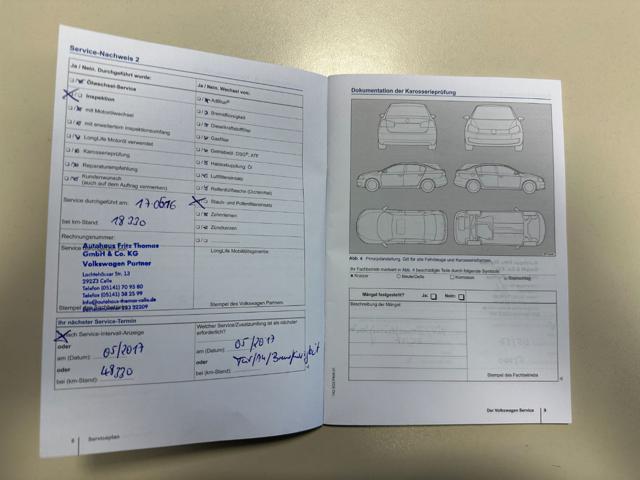 Service-Nachweis 2
Ja / Nein. Durchgeführt wurde:
Ölwechsel-Service
Inspektion
mit Motorölwechsel
mit erweitertem Inspektionsumfang
LongLife Motoröl verwendet
Karosserieprüfung
Reparaturempfehlung
Kundenwunsch
(auch auf dem Auftrag vermerken)
Service durchgeführt am: 17.06.16
bei km-Stand: 18330
Rechnungsnummer:
Autohaus Fritz Thomas
GmbH & Co. KG
Volkswagen Partner
Lachtehäuser Str. 13
29223 Celle
Telefon (05141) 70 93 80
Telefax (05141) 38 25 99
info@autohaus-thomas-celle.de
Stempel
Ja / Nein. Wechsel von:
AdBlue®
Bremsflüssigkeit
Dieselkraftstofffilter
Gasfilter
Getriebeöl DSG®, ATF
Haldexkupplung Öl
Luftfiltereinsatz
Reifenfüllflasche (Dichtmittel)
Staub- und Pollenfiltereinsatz
Zahnriemen
Zündkerzen
LongLife Mobilitätsgarantie:
Stempel des Volkswagen Partners
Ihr nächster Service-Termin
nach Service-Intervall-Anzeige
oder
am (Datum): 05/2017
oder
bei (km-Stand): 48330
Welcher Service/Zusatzumfang ist als nächster
erforderlich?
am (Datum): 05/2017
oder Tüv/AU/Bremsflüssigkeit
bei (km-Stand):
8 Serviceplan
Dokumentation der Karosserieprüfung
Abb. 4 Prinzipdarstellung. Gilt für alle Fahrzeuge und Karosserieformen.
Ihr Fachbetrieb markiert in Abb. 4 beschädigte Teile durch folgende Symbole:
Kratzer Beule/Delle Korrosion Steinschlag
Mängel festgestellt? Ja: Nein:
Beschreibung der Mängel:
Stempel des Fachbetriebs
Der Volkswagen Service 9